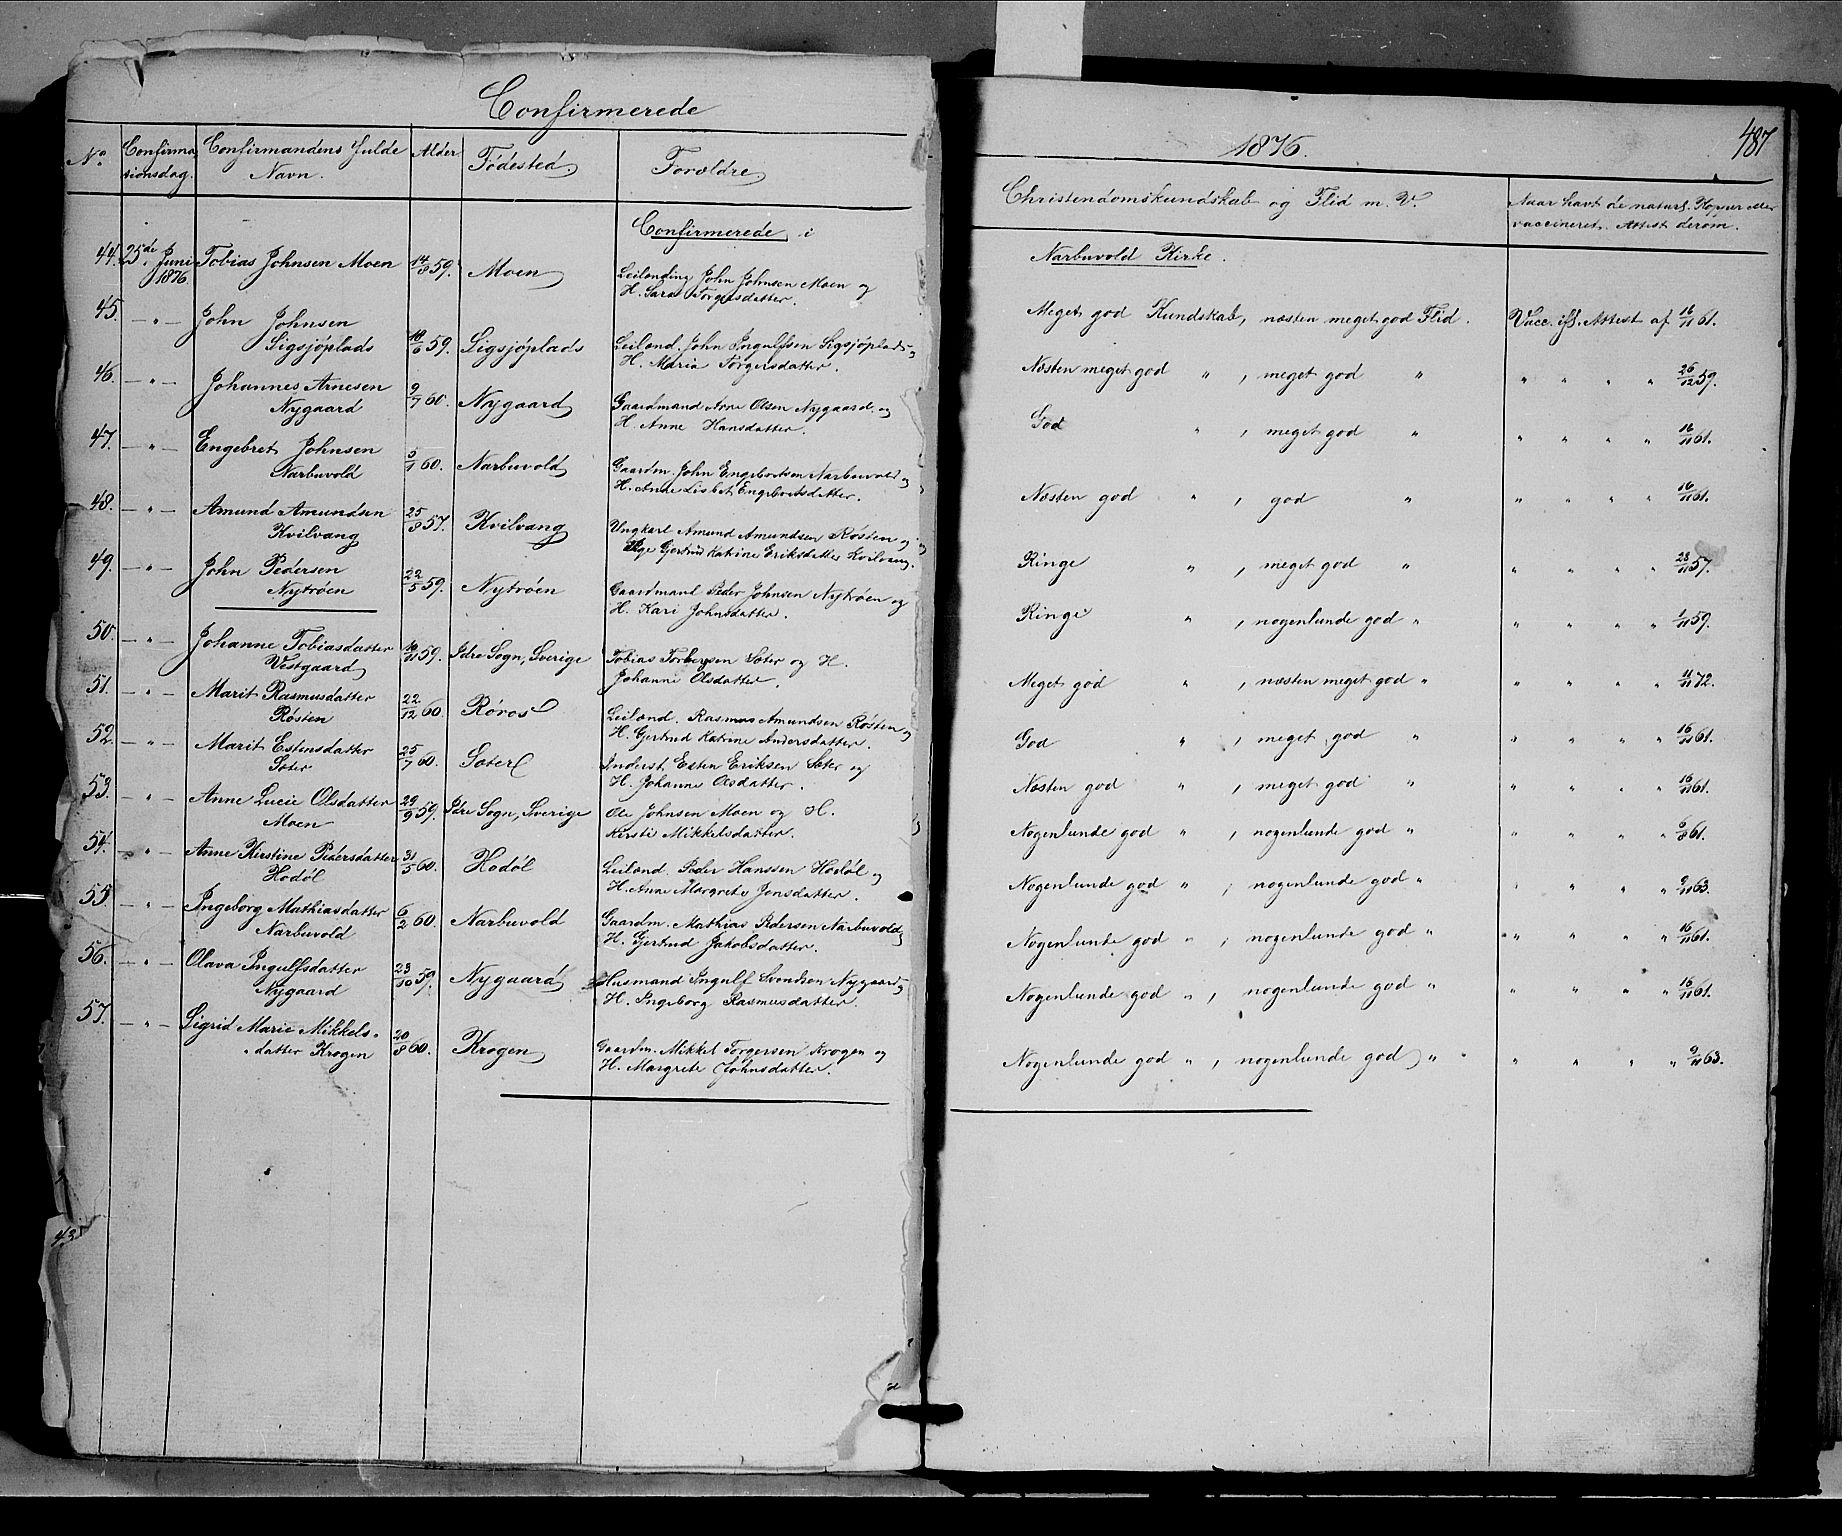 Confirmerede
No. Confirma Confirmandens fulde Alder Fødested. Forældre.
tionsdag. Navn.
Confirmerede i
44. 25de Juni Tobias Johnsen Moen 14/8 59. Moen Leilænding John Johnsen Moen og
1876 H. Sara Torgersdatter.
45. — " — John Johnsen
Sigsjöplads 59. Sigsjöplads Leilænd. John Ingulfsen Sigsjöplads
H. Maria Torgersdatter.
46. — " — Johannes Arnesen
Nygaard 9/7 60. Nygaard Gaardmand Arne Olsen Nygaard og
H. Anne Hansdatter.
47. — " — Engebret Johnsen
Narbuvold 5/1 60. Narbuvold Gaardm. John Engebretsen Narbuvold og
H. Anne Lisbet Engebretsdatter.
48. — " — Amund Amundsen
Kvilvang 25/8 57. Kvilvang Ungkarl Amund Amundsen Røsten og
Pige Gjertrud Katrine Eriksdatter Kvilvang.
49. — " — John Pedersen
Nytrøen 22/5 59. Nytrøen Gaardmand Peder Johnsen Nytrøen og
H. Kari Johnsdatter.
50. — " — Johanne Tobiasdatter
Vestgaard 59. Idre Sogn, Sverige Tobias Torbersen Sæter og H.
Johanne Olsdatter.
51. — " — Marit Rasmusdatter
Røsten 22/12 60. Røros Leilænd. Rasmus Amundsen Røsten og
H. Gjertrud Katrine Andersdatter.
52. — " — Marit Estensdatter
Sæter 25/7 60. Sæter Inderst Esten Eriksen Sæter og
H. Johanne Olsdatter.
53. — " — Anne Lucie Olsdatter
Moen 29/9 59. Idre Sogn, Sverige Ole Johnsen Moen og H.
Kirsti Mikkelsdatter.
54. — " — Anne Kirstine Pedersdatter
Hodøl 31/5 60. Hodøl Leilænd. Peder Hanssen Hodøl og
H. Anne Margrete Jonsdatter.
55. — " — Ingeborg Mathiasdatter
Narbuvold 6/2 60. Narbuvold Gaardm. Mathias Pedersen Narbuvold og
H. Gjertrud Jakobsdatter.
56. — " — Olava Ingulfsdatter
Nygaard 23/10 59. Nygaard Husmand Ingulf Svendsen Nygaard og
H. Ingeborg Rasmusdatter.
57. — " — Sigrid Marie Mikkels-
datter Krogen 20/8 60. Krogen Gaardm. Mikkel Torgersen Krogen og
H. Margrete Johnsdatter.
43
1876. 487
Christendomskundskab og Flid m. V. Naar havt de naturl. Kopper eller
vaccineret. Attest derom.
Narbuvold Kirke.
Meget god Kundskab, næsten meget god Flid. Vacc. ifl. Attest af 16/11 61.
Næsten meget god " , meget god " " " " " 26/12 59.
God " , meget god " " " " " 16/11 61.
Næsten god " , god " " " " " 16/11 61.
Ringe " , meget god " " " " " 28/11 57.
Ringe " , nogenlunde god " " " " " 1/11 59.
Meget god " , næsten meget god " " " " " 11/11 72.
God " , meget god " " " " " 16/11 61.
Næsten god " , meget god " " " " " 16/11 61.
Nogenlunde god " , nogenlunde god " " " " " 6/8 61.
Nogenlunde god " , nogenlunde god " " " " " 9/11 63.
Nogenlunde god " , nogenlunde god " " " " " 16/11 61.
Nogenlunde god " , nogenlunde god " " " " " 16/11 61.
Nogenlunde god " , nogenlunde god " " " " " 9/11 63.